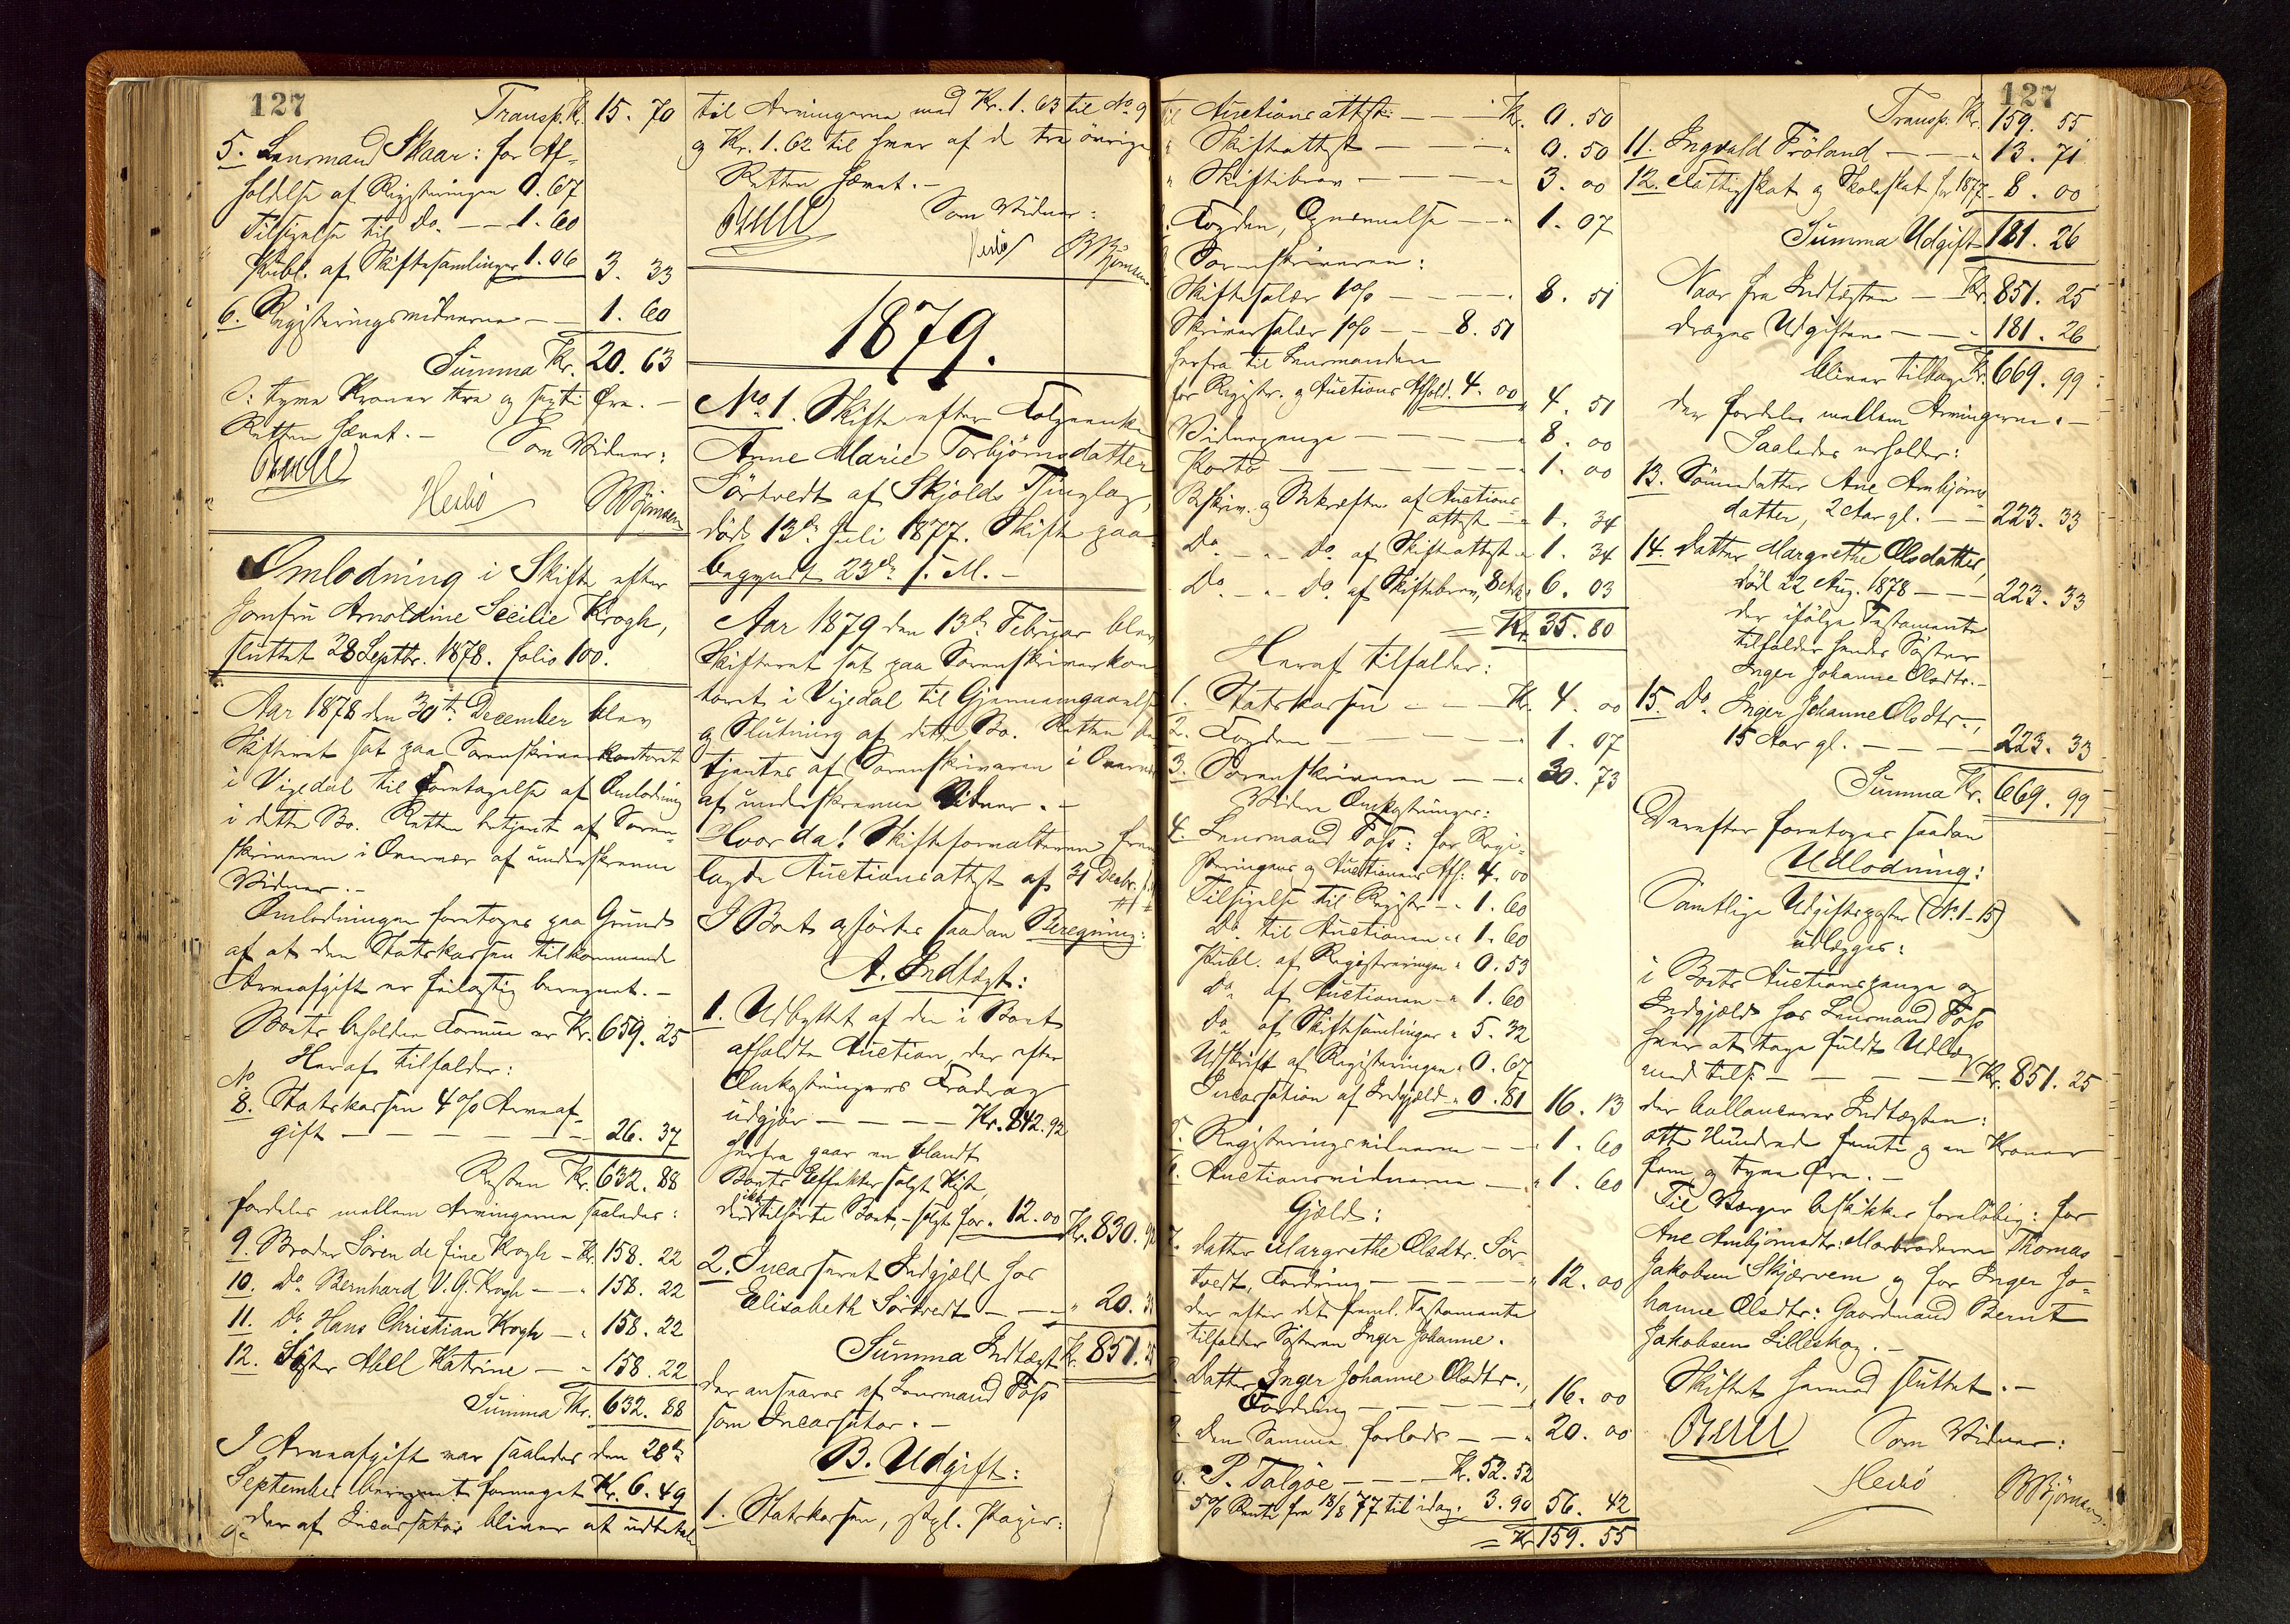 127
Transp. Kr. 15. 70
5. Lensmand Skaar: for Af-
holdelse af Registeringen 0.67
Tilsigelse til Do. — — 1.60
Publ. af Skiftesamlinger 1.06 3. 33
6. Registeringsvidnerne — — 1. 60
Summa Kr. 20. 63
ɔ: tyve Kroner tre og sexti Øre. —
Retten hævet. — Som Vidner:
Hesbø BBjørnsen
Omlodning i Skifte efter
Jomfru Arnoldine Secilie Krogh,
sluttet 28 Septbr. 1878. folio 100.
Aar 1878 den 30te December blev
Skifteret sat paa Sorenskriverkontoret
i Vigedal til Foretagelse af Omlodning
i dette Bo. Retten betjent af Soren-
skriveren i Overvær af underskrevne
Vidner. —
Omlodningen foretoges paa Grund
af at den Statskassen tilkommende
Arveafgift er feilagtig beregnet. —
Boets beholdne Formue er Kr. 659. 25
Heraf tilfalder:
No
8. Statskassen 4% Arveaf-
gift — — — — — 26. 37
Resten Kr. 632. 88
fordeles mellem Arvingerne saaledes:
9. Broder Sören de fine Krogh — Kr. 158. 22
10. Do Bernhard V. G. Krogh — — " 158. 22
11. Do Hans Christian Krogh — " 158. 22
12. Søster Abell Katrine — " 158. 22
Summa Kr. 632. 88
I Arveafgift var saaledes den 28de
September beregnet formeget Kr. 6. 49
der af Incassator bliver at udbetale
til Arvingerne med Kr. 1.63 til No 9
og Kr. 1.62 til hver af de tre øvrige.
Retten hævet. —
Som Vidner:
Hesbø BBjørnsen
1879.
No 1. Skifte efter Folgeenke
Anne Marie Torbjørnsdatter
Sörtvedt af Skjolds Thinglag,
död 13de Juli 1877. Skifte paa-
begyndt 23de s. M. —
Aar 1879 den 13de Februar blev
Skifteret sat paa Sorenskriverkon
toret i Vigedal til Gjennemgaaelse
og Slutning af dette Bo. Retten be
tjentes af Sorenskriveren i Overvær
af underskrevne Vidner. —
Hvorda! Skifteforvalteren frem
lagde Auctionsattest af 31 Decbr.
I Boet opførtes saadan Beregning:
A. Indtægt:
1. Udbyttet af den i Boet
afholdte Auction, der efter
Omkostningers Fradrag
udgjör — — — — Kr. 842.92
herfra gaar en blandt
Boets Effekter solgt Kiste,
der ikke tilhørte Boet, — solgt for " 12.00 Kr. 830. 92
2. Incasseret Indgjæld hos
Elisabeth Sörtvedt — — " 20. 33
Summa Indtægt Kr. 851. 25
der ansvares af Lensmand Foss
som Incassator. —
B. Udgift:
1. Statskassen, stpl. Papir:
127
til Auctionsattest: — — Kr. 0. 50
" Skifteattest — — — " 0. 50
" Skiftebrev — — — — " 3. 00
2. Fogden, Opnævnelse — — " 1. 07
3. Sorenskriveren:
Skiftesalær 1% — — — — " 8. 51
Skriversalær 1% — — 8. 51
herfra til Lensmanden
for Registr. og Auctions Afhold. 4. 00 " 4. 51
Vidnepenge — — — — — " 8. 00
Porto — — — — — — " 1. 00
Beskriv. og Bekræftn. af Auctions-
attest — " 1. 34
Do — " — Do af Skifteattest " 1. 34
Do — " — Do af Skiftebrev, 8 Ark " 6. 03
= Kr. 35. 80
Heraf tilfalder:
1. Statskassen — — — Kr. 4. 00
2. Fogden — — — — — " 1. 07
3. Sorenskriveren — — " 30. 73
Videre Omkostninger:
4. Lensmand Foss: for Regi-
streringens og Auctionens Afh: 4. 00
Tilsigelse til Registr — " 1. 60
Do til Auctionen " 1. 60
Publ. af Registreringen " 0. 53
Do af Auctionen — " 1. 60
Do af Skiftesamlinger " 5. 32
Udskrift af Registeringen " 0. 67
Incassation af Indgjæld " 0. 81 16. 13
5. Registeringsvidnerne — — " 1. 60
6. Auctionsvidnerne — — " 1. 60
Gjæld:
7. Datter Margrethe Olsdtr. Sör-
tvedt, Fordring — — — — " 12. 00
der efter det freml. Testamente
tilfalder Søsteren Inger Johanne.
8. Datter Inger Johanne Olsdtr.,
Fordring — — — — — " 16. 00
9. Den Samme forlods — — " 20. 00
10. P. Talgøe — — — — Kr. 52. 52
5% Rente fra 18/8 77 til idag " 3. 90 56. 42
= Kr. 159. 55
Transp. Kr. 159. 55
11. Ingvald Fröland — — — " 13. 71
12. Fattigskat og Skoleskat for 1877 — 8. 00
Summa Udgift 181. 26
Naar fra Indtægten — Kr. 851. 25
drages Udgiften — — — " 181. 26
bliver tilbage Kr. 669. 99
der fordeles mellem Arvingerne. —
Saaledes erholder:
13. Sönnedatter Ane Ambjørns-
datter, 2 Aar gl. — — 223. 33
14. Datter Margrethe Olsdatter,
död 22 Aug. 1878 — — — 223. 33
der ifølge Testamente
tilfalder hendes Søster
Inger Johanne Olsdtr. —
15. Do Inger Johanne Olsdtr.,
15 Aar gl. — — — — 223. 33
Summa Kr. 669. 99
Derefter foretoges saadan
Udlodning:
Samtlige Udgiftsposter (No 1—15)
udlægges:
i Boets Auctionspenge og
Indgjæld hos Lensmand Foss
hver at tage fuldt Udlæg
med tils: — — — — — Kr. 851. 25
der ballancerer Indtægten:
otte Hundrede femti og en Kroner
fem og tyve Øre. —
Til Værger beskikkes foreløbig: for
Ane Ambjørnsdtr: Morbroderen Thomas
Jakobsen Skjærvem og for Inger Jo-
hanne Olsdtr: Gaardmand Bernt
Jakobsen Lilleskog. —
Skiftet hermed sluttet. —
Som Vidner:
Hesbø BBjørnsen